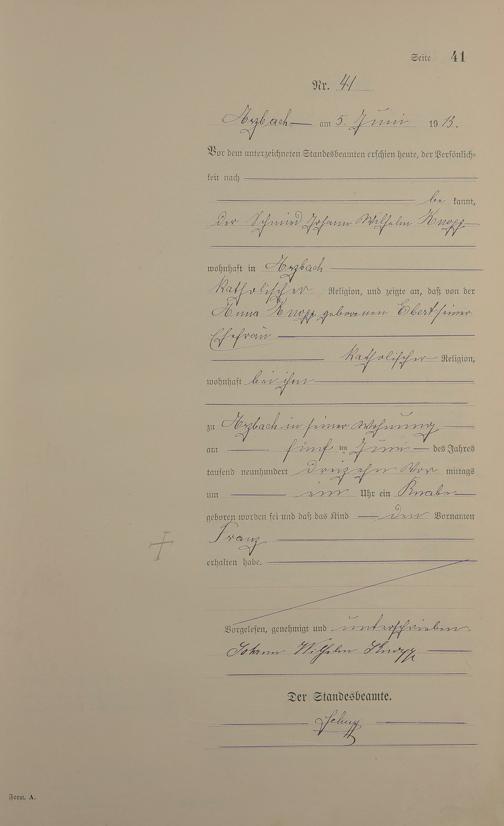 Seite 41
Nr. 41
Arzbach am 5. Juni 1913.
Vor dem unterzeichneten Standesbeamten erschien heute, der Persönlich-
keit nach
be kannt,
der Schmied Johann Wilhelm Knopp
wohnhaft in Arzbach
katholischer Religion, und zeigte an, daß von der
Anna Knopp geborenen Ebert seiner
Ehefrau
katholischer Religion,
wohnhaft bei ihm
zu Arzbach in seiner Wohnung
am fünf ten Juni des Jahres
tausend neunhundert dreizehn Vor mittags
um ein Uhr ein Knabe
geboren worden sei und daß das Kind den Vornamen
Franz
erhalten habe.
Vorgelesen, genehmigt und unterschrieben
Johann Wilhelm Knopp
Der Standesbeamte.
Form. A.